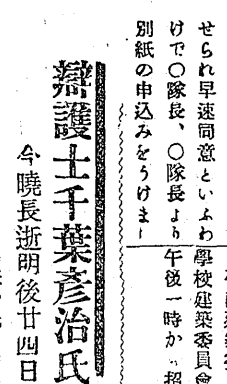 せられ早速同意といふわ
けで〇隊長、〇隊長より
別紙の申込みをうけまし
學校建築委員會
午後一時から招
辯護士千葉彥治氏
今曉長逝明後廿四日